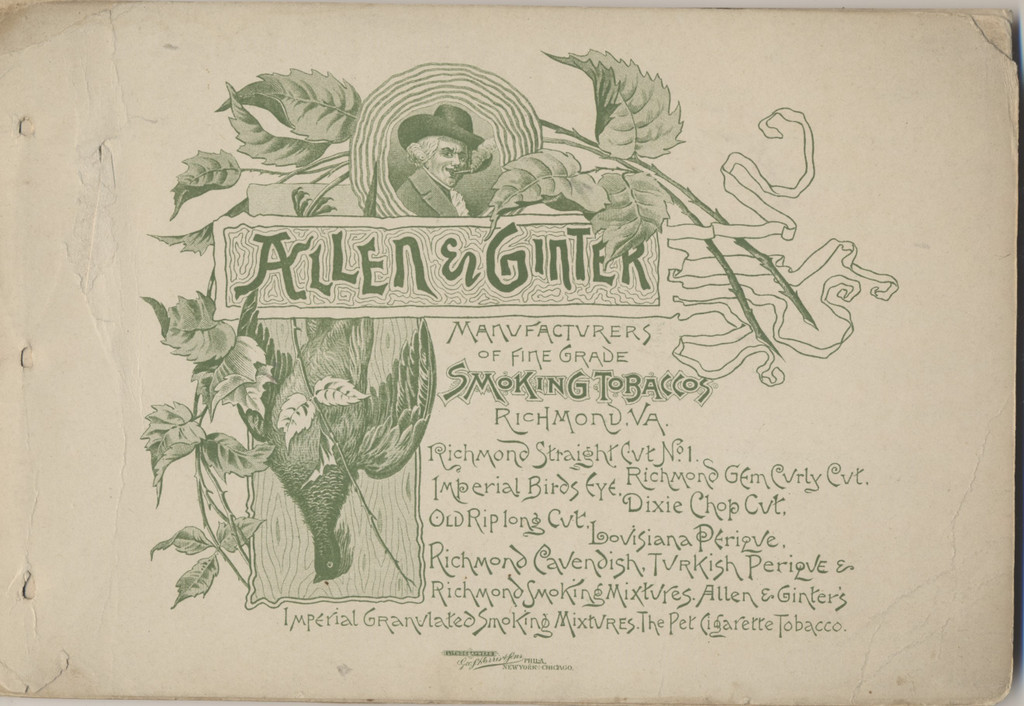 ALLEN & GINTER
MANUFACTURERS
OF FINE GRADE
SMOKING TOBACCOS
RICHMOND. VA.
Richmond Straight Cut No 1.
Richmond Gem Curly Cut.
Imperial Birds Eye.
Dixie Chop Cut,
Old Rip long Cut.
Louisiana Perique.
Richmond Cavendish, Turkish Perique &
Richmond Smoking Mixtures. Allen & Ginter's
Imperial Granulated Smoking Mixtures. The Pet Cigarette Tobacco.
PHILA.
NEW YORK · CHICAGO.